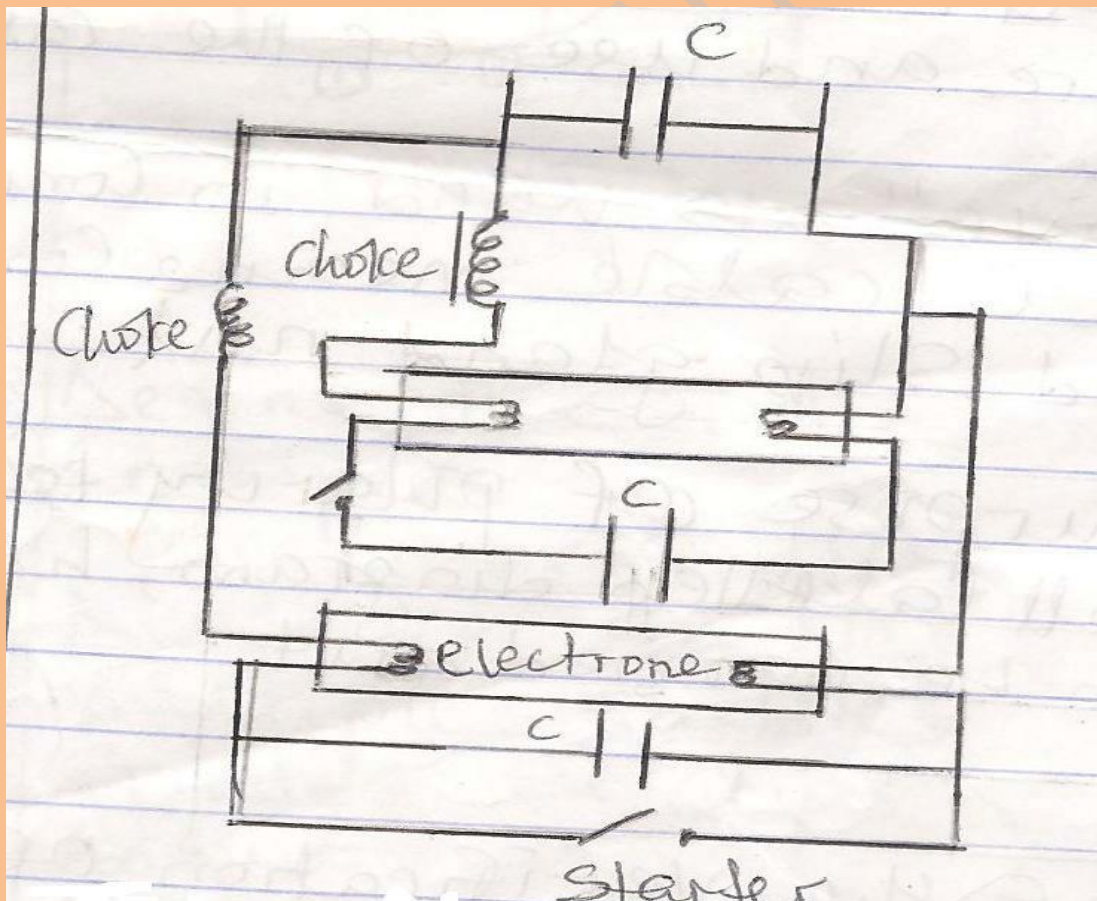 C
Choke
Choke
C
electrone
C
Starter